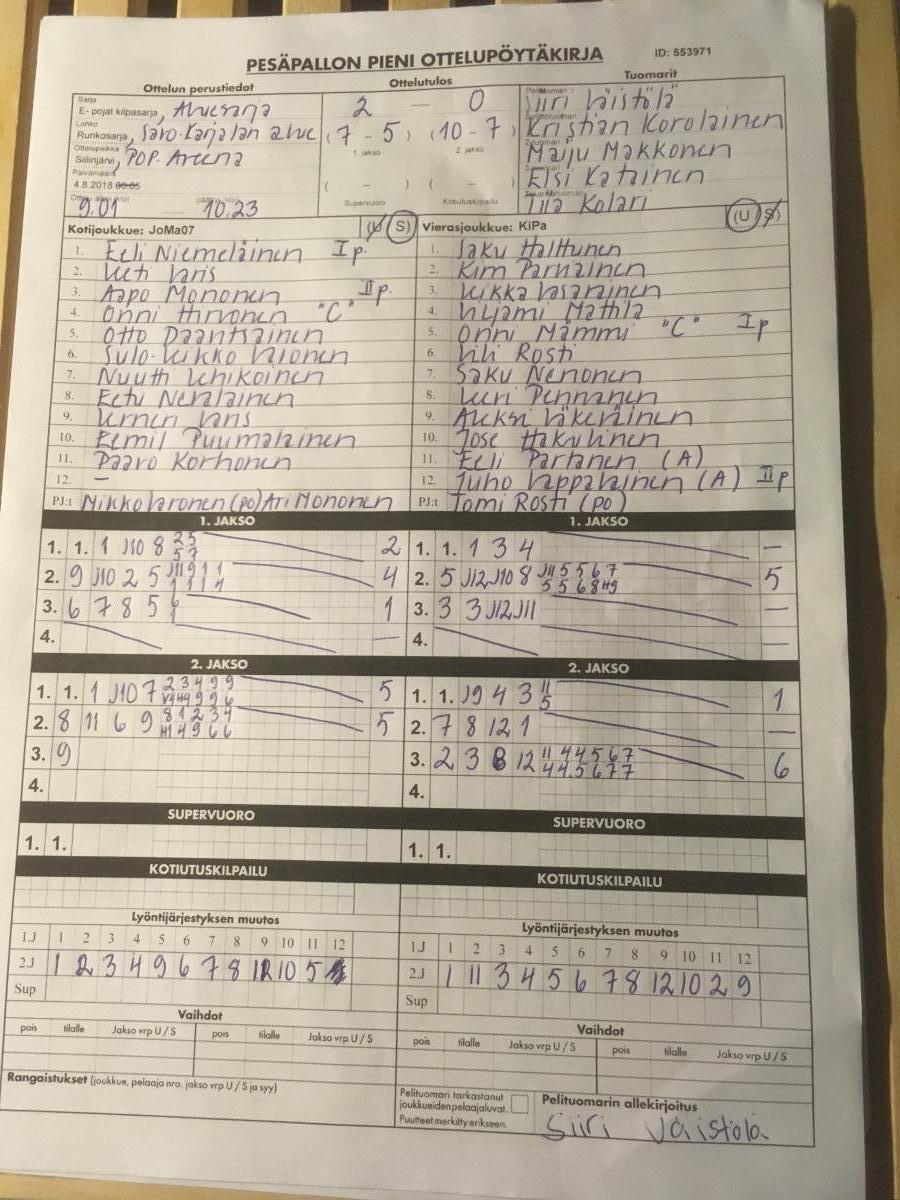 PESÄPALLON PIENI OTTELUPÖYTÄKIRJA ID: 553971
Ottelun perustiedot Ottelutulos Tuomarit
Sarja
E- pojat kilpasarja, Aluesarja 2 – 0 Siiri Väistölä
Lohko
Runkosarja, Savo-Karjalan alue (7 - 5) (10 - 7) Kristian Korolainen
Ottelupaikka 1. jakso 2. jakso
Siilinjärvi, POP-Areena Maiju Makkonen
Päivämäärä
4.8.2018 ( – ) ( – ) Elsi Katainen
9.01 10.23 Supervuoro Kotiutuskilpailu Tiia Kolari
Kotijoukkue: JoMa07 U S Vierasjoukkue: KiPa U S
1. Eeli Niemeläinen I p. 1. Saku Halttunen
2. Veti Varis 2. Kim Parviainen
3. Aapo Mononen II p. 3. Veikka Vasarainen
4. Onni Hirvonen "C" 4. Viljami Mathla
5. Otto Pääntsäinen 5. Onni Mämmi "C" I p
6. Sulo-Veikko Varonen 6. Vili Rosti
7. Nuutti 7. Saku Nenonen
8. Eetu Nevalainen 8. Veeri Pennanen
9. Verneri Varis 9. Aleksi Väkeväinen
10. Eemil Puumalainen 10. Jose Hakulinen
11. Paavo Korhonen 11. Eeli Partanen (A)
12. – 12. Juho Vappalainen (A) II p
PJ:t Mikko Varonen (po) Ari Mononen PJ:t Tomi Rosti (po)
1. JAKSO 1. JAKSO
1. 1. 1 J10 8 2 5 2 1. 1. 1 3 4 –
5 7
2. 9 J10 2 5 J11 9 1 1 4 2. 5 J12 J10 8 J11 5 5 6 7 5
1 1 1 4 5 5 6 8 H9
3. 6 7 8 5 6 1 3. 3 3 J12 J11 –
1
4. – 4. –
2. JAKSO 2. JAKSO
1. 1. 1 J10 7 2 3 4 9 9 5 1. 1. J9 4 3 11 1
V4 H4 9 9 6 5
2. 8 11 6 9 8 1 2 3 4 5 2. 7 8 12 1 –
H1 4 9 6 6
3. 9 3. 2 3 8 12 11 4 4 5 6 7 6
4 4 5 6 7 7
4. 4.
SUPERVUORO SUPERVUORO
1. 1. 1. 1.
KOTIUTUSKILPAILU KOTIUTUSKILPAILU
Lyöntijärjestyksen muutos Lyöntijärjestyksen muutos
1.J 1 2 3 4 5 6 7 8 9 10 11 12 1.J 1 2 3 4 5 6 7 8 9 10 11 12
2.J 1 2 3 4 9 6 7 8 12 10 5 2.J 1 11 3 4 5 6 7 8 12 10 2 9
Sup Sup
Vaihdot Vaihdot
pois tilalle Jakso vrp U / S pois tilalle Jakso vrp U / S pois tilalle Jakso vrp U / S pois tilalle Jakso vrp U / S
Rangaistukset (joukkue, pelaaja nro. jakso vrp U / S ja syy)
Pelituomari tarkastanut
joukkueiden pelaajaluvat.
Puutteet merkitty erikseen.
Pelituomarin allekirjoitus
Siiri Väistölä